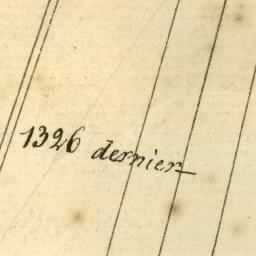 1326 dernier